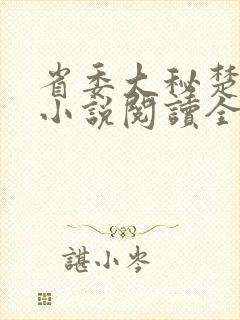 省委大秘楚
小说閱讀全
諶小岑